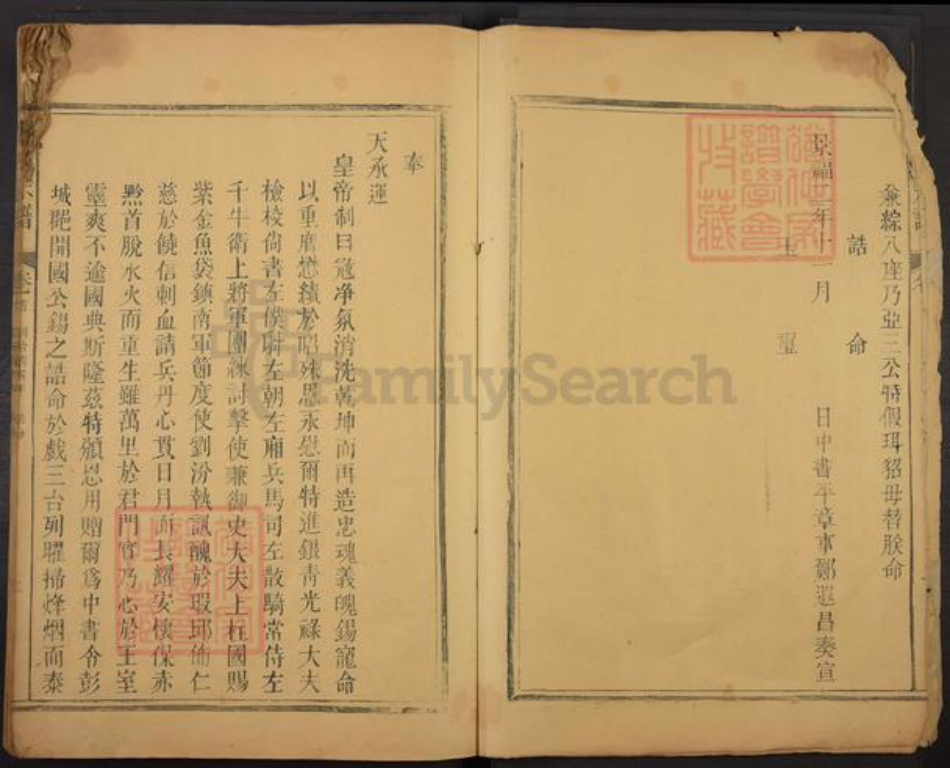 兼綜八座乃亞三公特假珥貂毋替朕命
誥命
景福二年十二月　日中書平章事鄭遐昌奏宣
奉
天承運
皇帝制曰寇净氛消沈乾坤而再造忠魂義魄錫寵命
以重膺懋績於昭殊恩永慰爾特進銀青光祿大夫
檢校尙書左僕射左朝左廂兵馬司左散騎常侍左
千牛衛上將軍團練討擊使兼御史大夫上柱國賜
紫金魚袋鎮南軍節度使劉汾執訊醜於瑕邱佈仁
慈於饒信刺血請兵丹心貫日月而長耀安懷保赤
黔首脫水火而重生雖萬里於君門實乃心於王室
靈爽不逾國典斯隆茲特頒恩用贈爾爲中書令彭
城郡開國公錫之誥命於戲三台列曜掃烽烟而泰
卷
FamilySearch